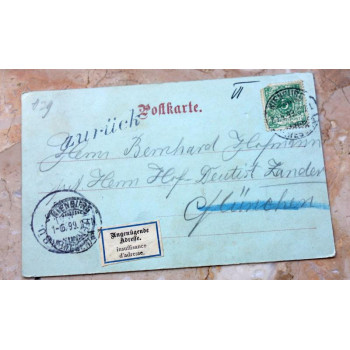 Postkarte.
zurück
Herrn Bernhard Hofmann
Herrn Hof Dentist Zander
München
Ungenügende
Adresse.
insuffisance
d'adresse.